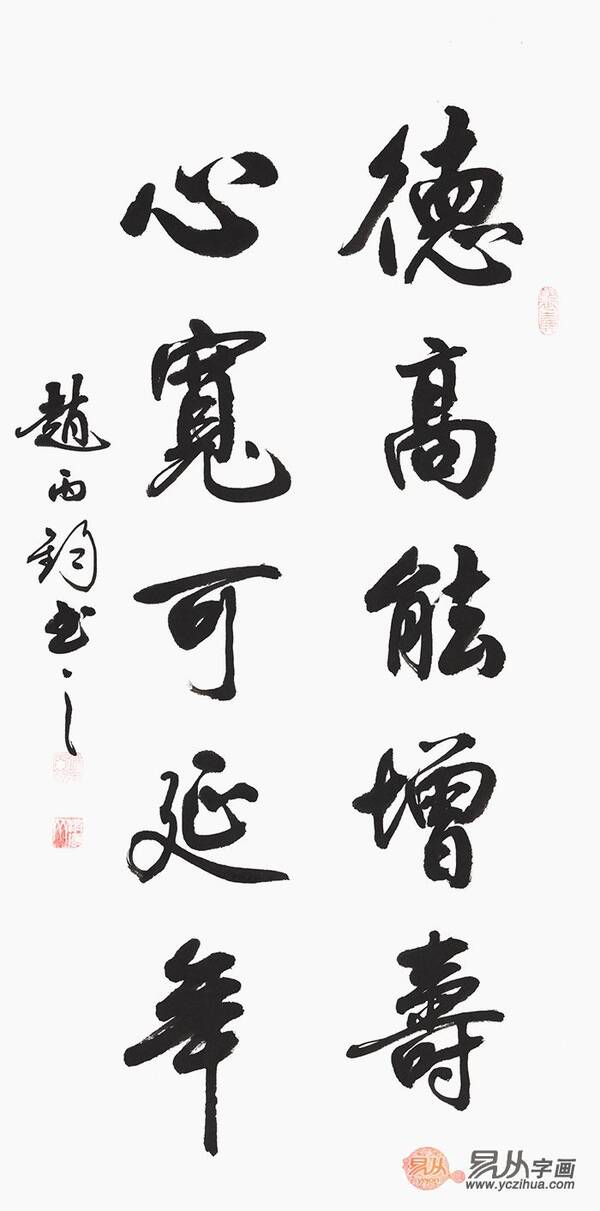 德高能增壽
心寬可延年
趙雨鈞书之
易从
易从字画
www.yczihua.com